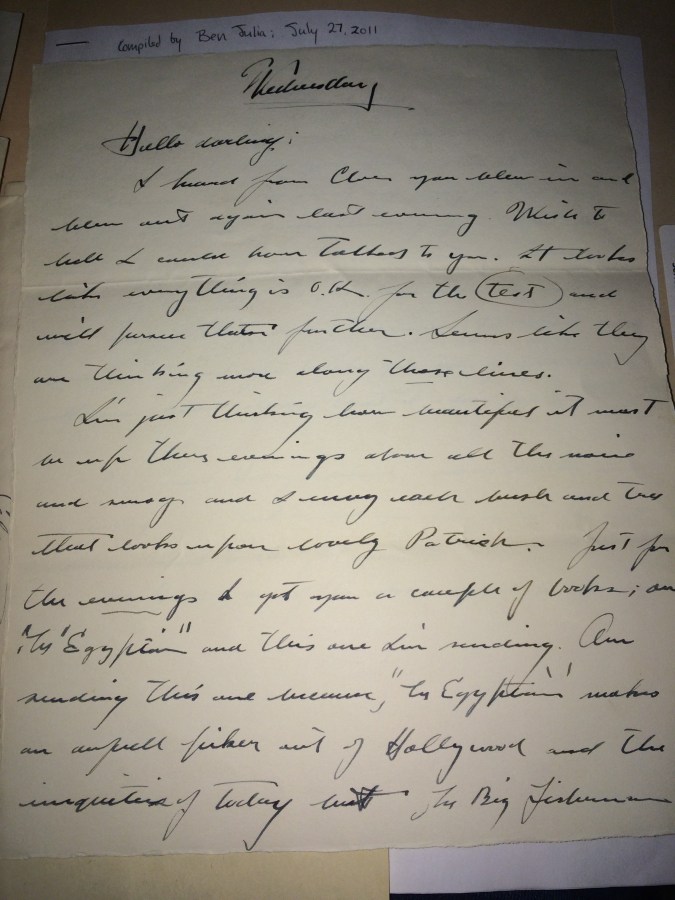 Compiled by Ben Julia: July 27, 2011
Wednesday
Hello darling;
I heard from Clover you blew in and
blew out again last evening. Wish to
hell I could have talked to you. It looks
like everything is O.K. for the test and
will pursue that further. Seems like they
are thinking more along those lines.
I'm just thinking how beautiful it must
be up there evenings above all the noise
and smog and I envy each bush and tree
that looks upon lovely Patrick. Just for
the evenings I got you a couple of books; one
"The Egyptian" and this one I'm sending. Am
sending this one because, "The Egyptian" makes
an awful piker out of Hollywood and the
iniquities of today but The Big Fisherman